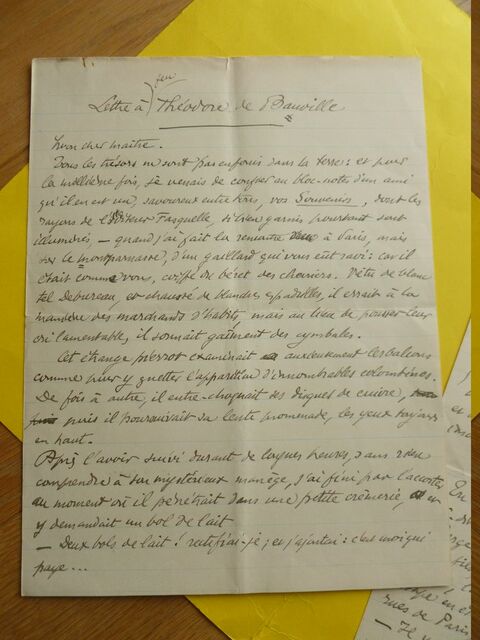 feu
Lettre à Théodore de Banville
Mon cher maître.
Tous les trésors ne sont pas enfouis dans la terre : et pour
la millième fois, je venais de confier au bloc-notes d'un ami
qu'il en est un, savoureux entre tous, vos Souvenirs, dont les
rayons de l'Editeur Fasquelle, si bien garnis pourtant sont
illuminés, — quand j'ai fait la rencontre à Paris, mais
sur le montparnasse, d'un gaillard qui vous eut ravi : car il
était comme vous, coiffé du béret des chevriers. Vêtu de blanc
tel Debureau, et chaussé de blanches espadrilles, il errait à la
manière des marchands d'habits, mais au lieu de pousser leur
cri lamentable, il sonnait gaîment des cymbales.
Cet étrange pierrot examinait anxieusement les balcons
comme pour y guetter l'apparition d'innombrables colombines.
De fois à autre, il entre-choquait ses disques de cuivre,
puis il poursuivait sa lente promenade, les yeux toujours
en haut.
Après l'avoir suivi durant de longues heures, sans rien
comprendre à son mystérieux manège, j'ai fini par l'accoster
au moment où il pénétrait dans une petite crèmerie, et
y demandait un bol de lait
— Deux bols de lait ! rectifiai-je ; et j'ajoutai : c'est moi qui
paye...
rues de Paris
— Je